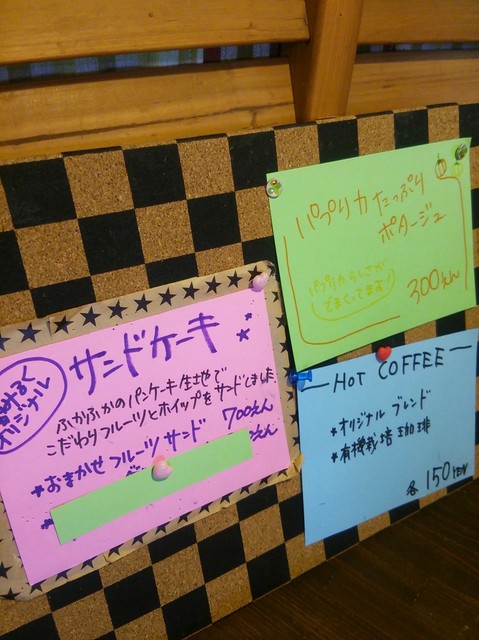 パプリカたっぷり
ポタージュ
300えん
サンドケーキ
オリジナル
ふかふかのパンケーキ生地で
こだわりフルーツとホイップをサンドしました
*おまかせフルーツサンド 700えん
*
えん
HOT COFFEE
*オリジナル ブレンド
*有機栽培珈琲
各150YEN